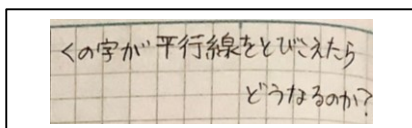 くの字が平行線をとびこえたら
どうなるのか?